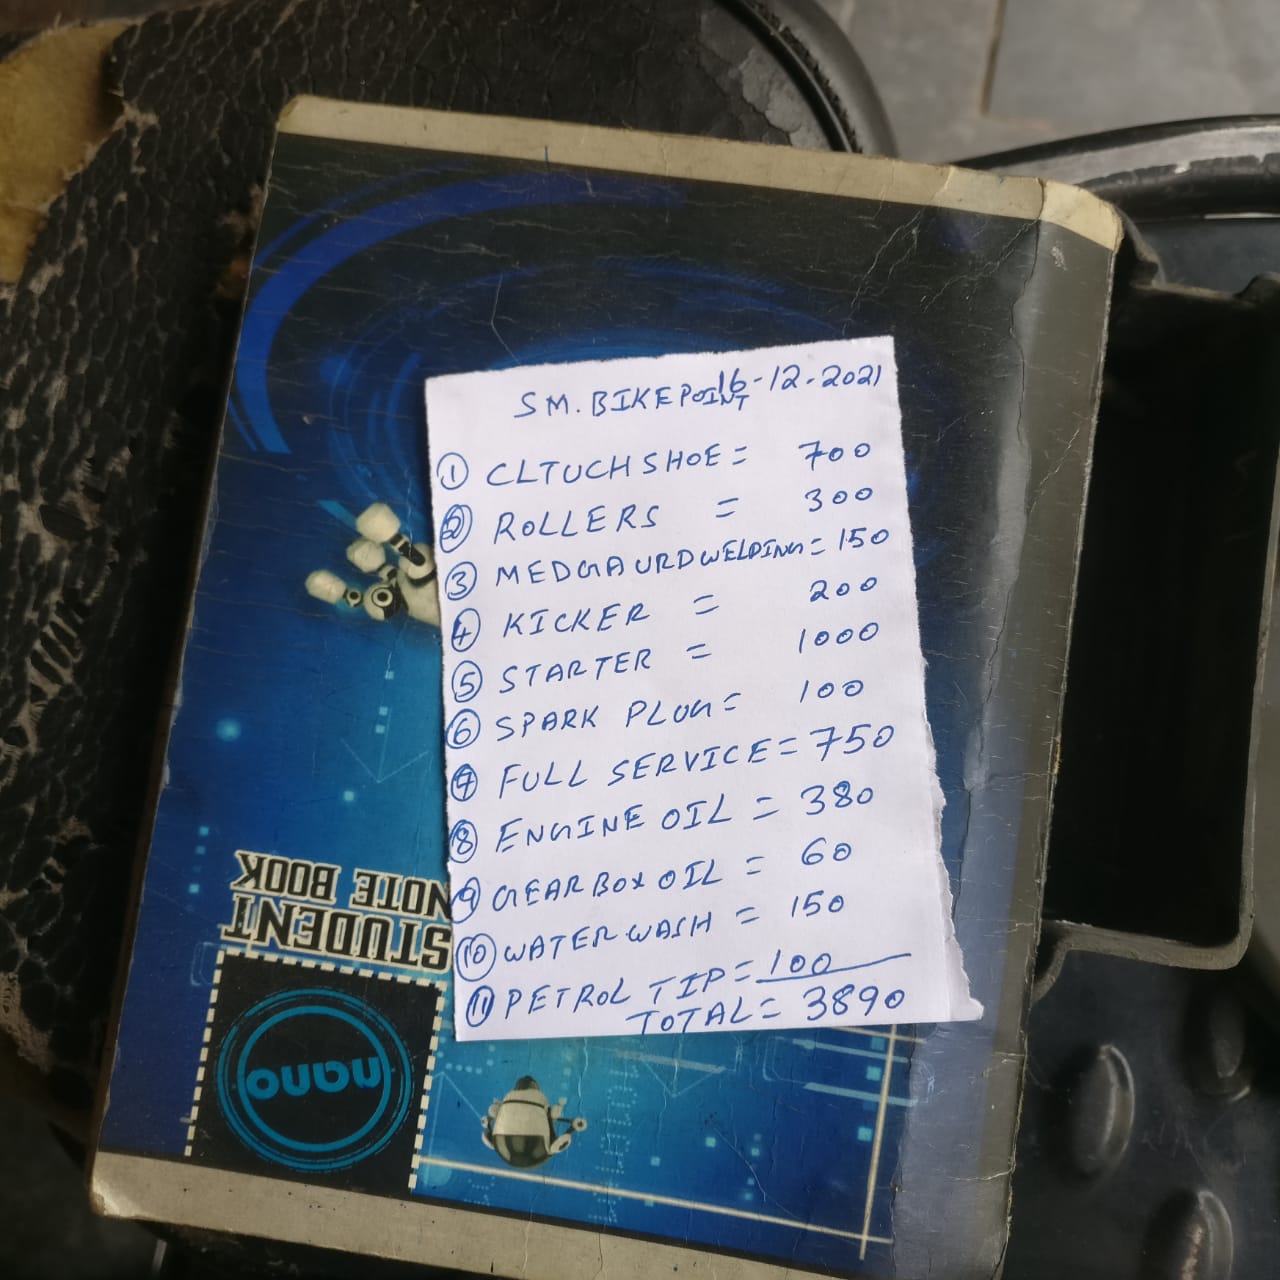 SM. BIKEPOINT 16-12-2021
1 CLTUCH SHOE = 700
2 ROLLERS = 300
3 MEDGAURDWELDING = 150
4 KICKER = 200
5 STARTER = 1000
6 SPARK PLUG = 100
7 FULL SERVICE = 750
8 ENGINE OIL = 380
9 GEAR BOX OIL = 60
10 WATER WASH = 150
11 PETROL TIP = 100
TOTAL = 3890
STUDENT
NOTE BOOK
nano